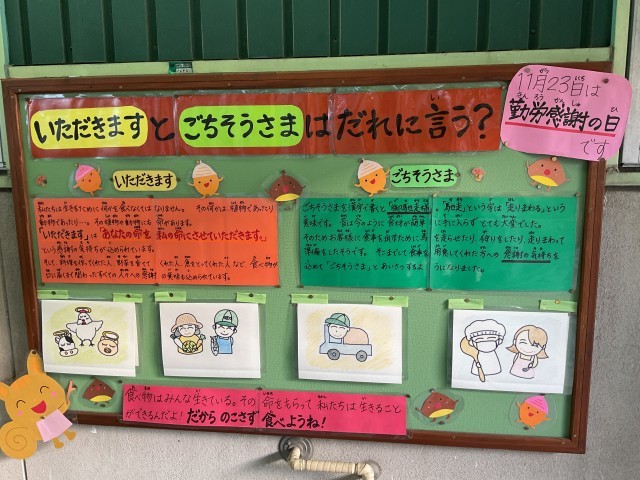 いただきますとごちそうさまはだれに言う?
11月23日は
勤労感謝の日
です
いただきます
私たちは生きるために何かを食べなくてはなりません。その何かは植物であったり
動物であったり…。その植物や動物にも命があります。
「いただきます」は「あなたの命を私の命にさせていただきます。」
という感謝の気持ちが込められています。
そして、料理を作ってくれた人、野菜を育てて
くれた人、魚をとってくれた人など、食べ物が
の意味も込められています。
ごちそうさま
ごちそうさまを漢字で書くと「御馳走様」
意味です。昔は今のように食材が簡単
そのためお客様に食事を出すために馬
準備をしたそうです。そこまでして食事を
込めて「ごちそうさま」とあいさつするよ
「馳走」という字は「走りまわる」という
に手に入らずとても大変でした。
を走らせたり、狩りをしたり、走りまわって
用意してくれた方への感謝の気持を
うになりました。
食べ物はみんな生きている。その命をもらって私たちは生きること
ができるんだよ!だからのこさず食べようね!